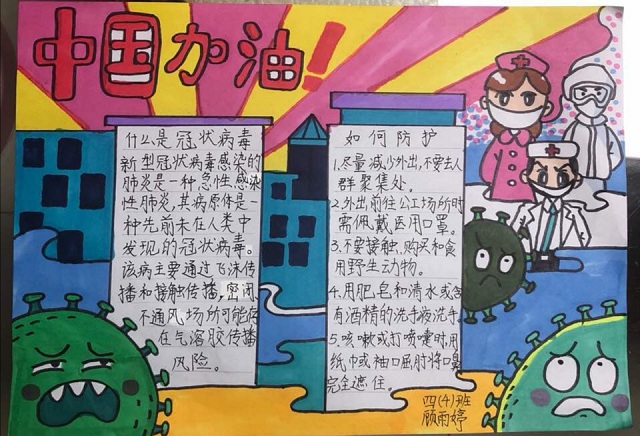 中国加油!
什么是冠状病毒
新型冠状病毒感染的
肺炎是一种,急性感染
性肺炎,其病原体是一
种先前未在人类中
发现的冠状病毒。
该病主要通过飞沫传
播和接触传播,密闭
不通风场所可能存
在气溶胶传播
风险。
如何防护
1.尽量减少外出,不要去人
群聚集处。
2.外出前往公工场所时
需佩戴医用口罩。
3.不要接触,购买和食
用野生动物。
4.用肥皂和清水或含
有酒精的洗手液洗手。
5.咳嗽或打喷嚏时用
纸巾或袖口屈肘将口鼻
完全遮住。
四(4)班
顾雨婷